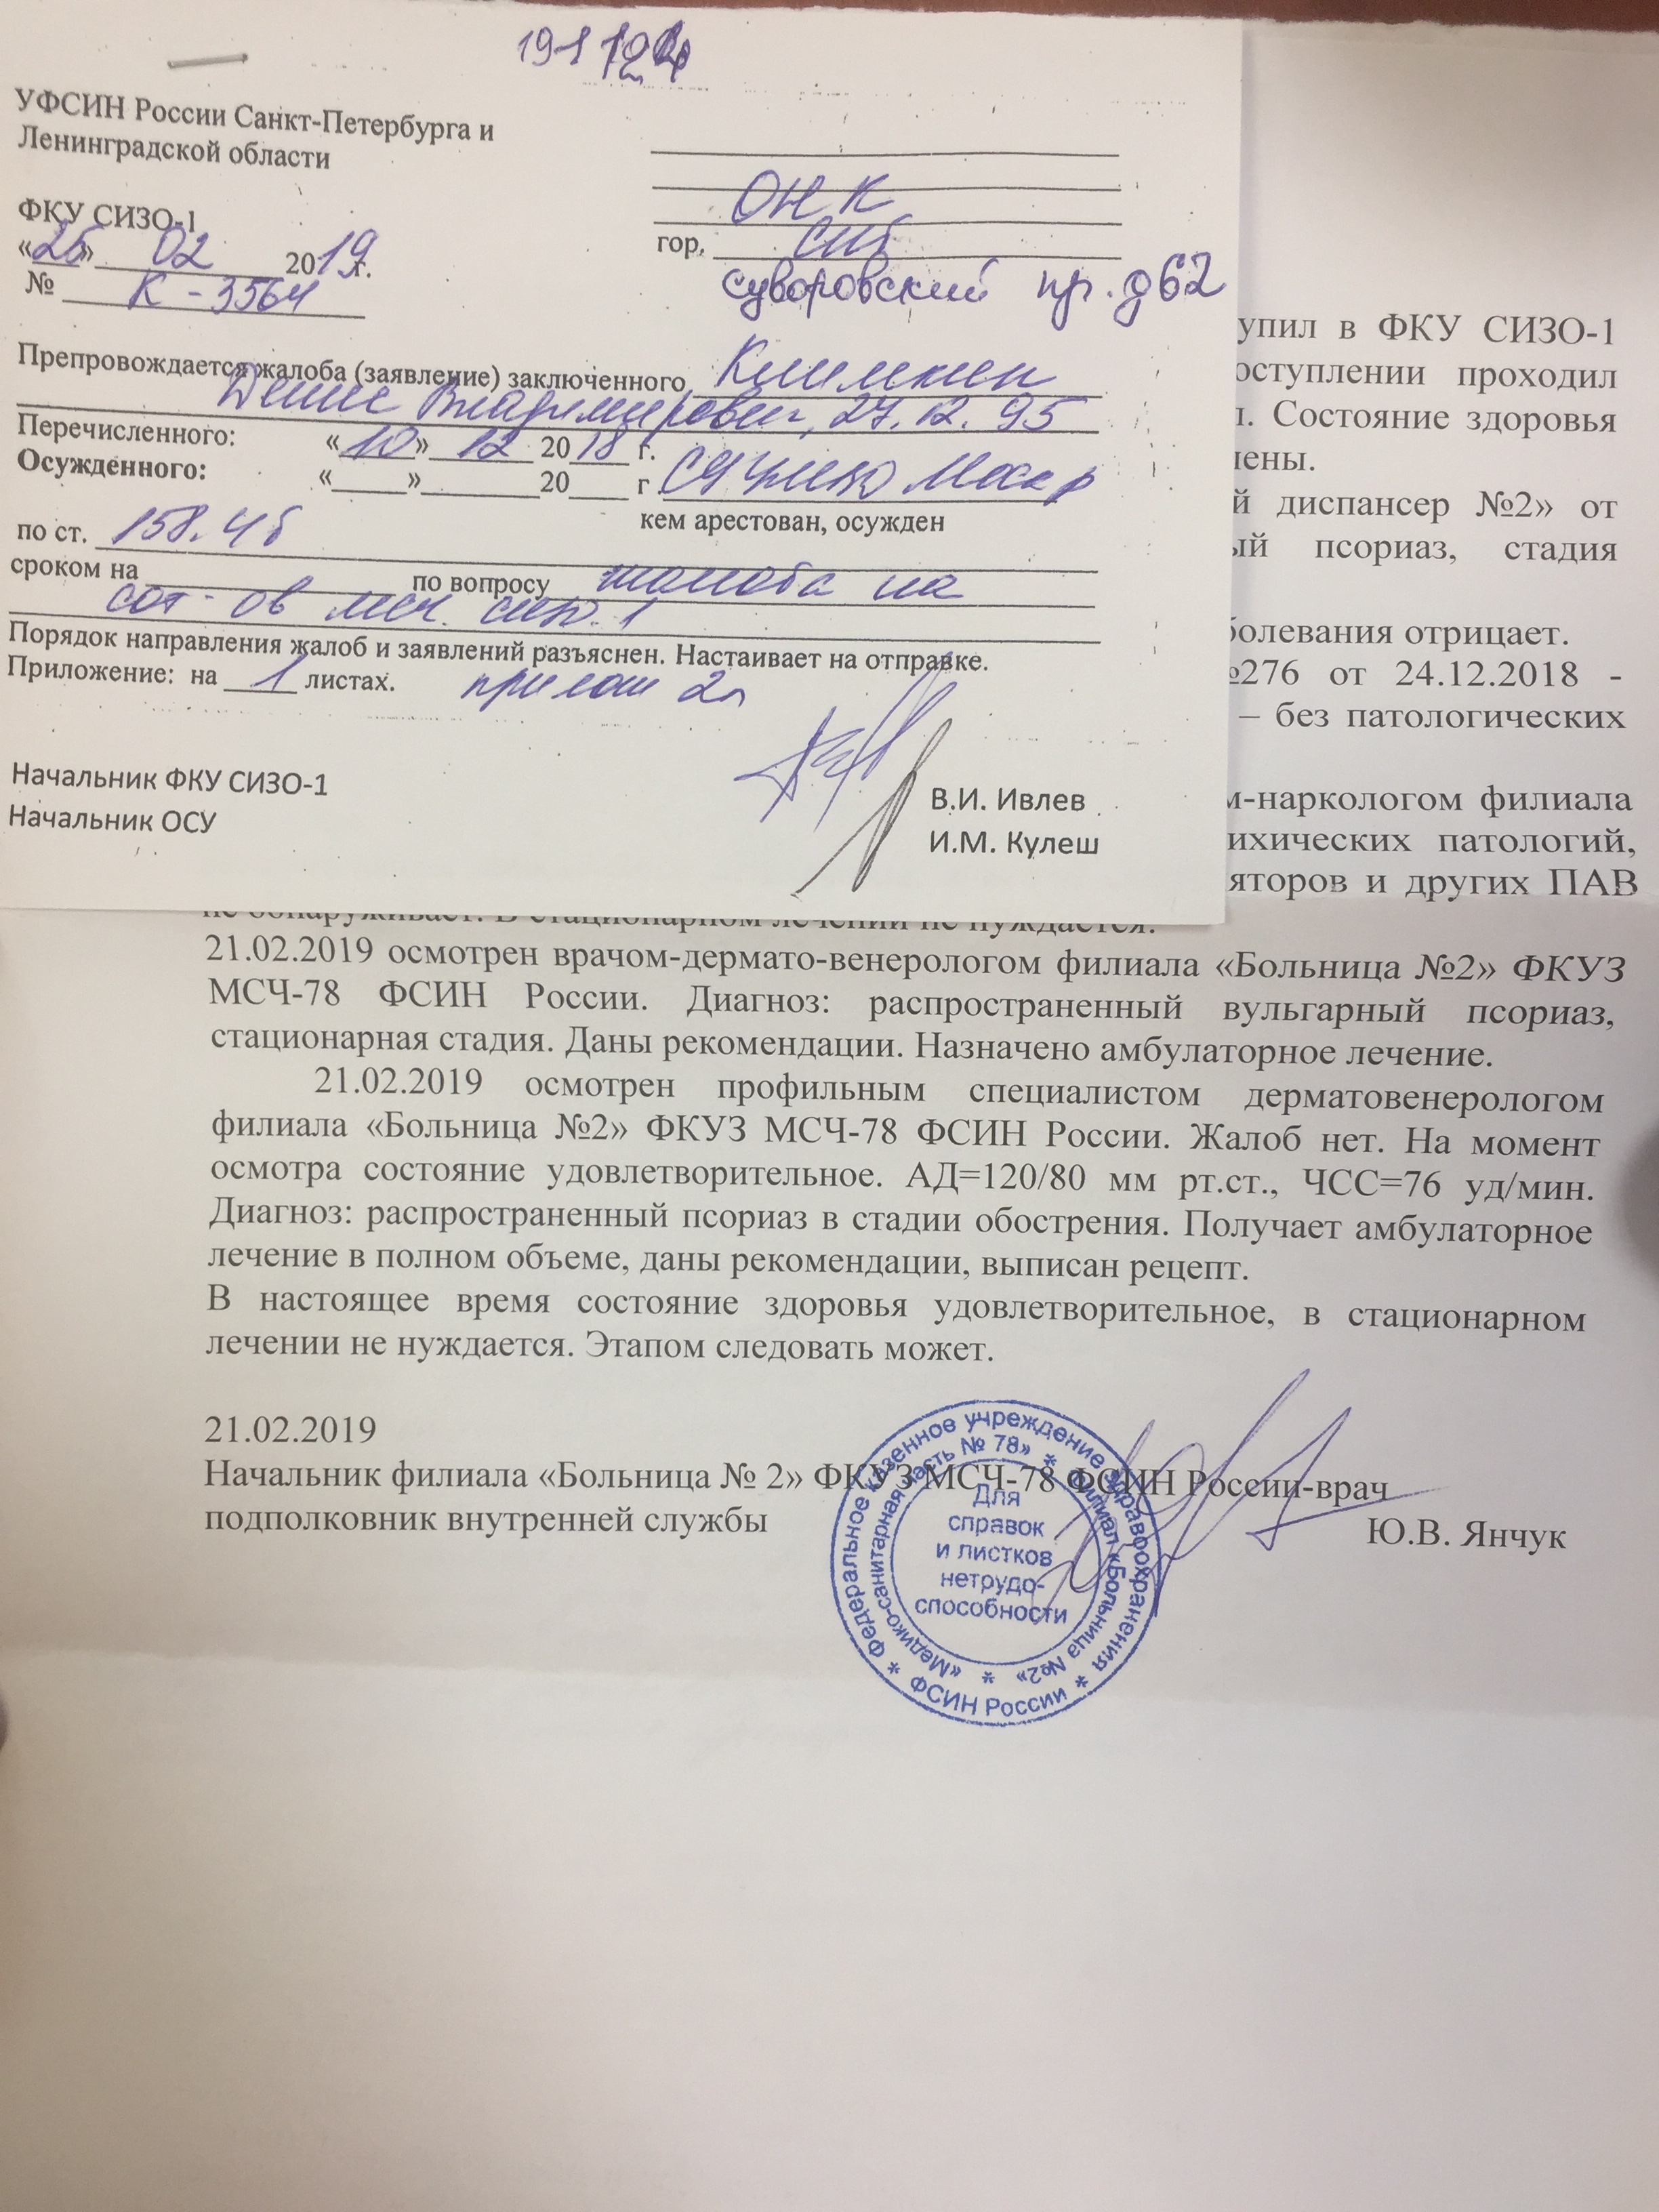 УФСИН России Санкт-Петербурга и
Ленинградской области
ФКУ СИЗО-1
«25» 02 2019 г.
№ К-3564
ОНК
гор. СПб
Суворовский пр. д 62
Препровождается жалоба (заявление) заключенного Климкин
Денис Владимирович, 27.12.95
Перечисленного: «10» 12 2018 г.
Осужденного: « » 20 г
кем арестован, осужден
по ст. 158. ч
сроком на по вопросу жалоба на
сот-ов мсч. сизо.1
Порядок направления жалоб и заявлений разъяснен. Настаивает на отправке.
Приложение: на 1 листах. прилож 2л
Начальник ФКУ СИЗО-1 В.И. Ивлев
Начальник ОСУ И.М. Кулеш
упил в ФКУ СИЗО-1
оступлении проходил
. Состояние здоровья
лены.
й диспансер №2» от
ый псориаз, стадия
болевания отрицает.
№276 от 24.12.2018 -
– без патологических
м-наркологом филиала
ихических патологий,
яторов и других ПАВ
не обнаруживает. В стационарном лечении не нуждается.
21.02.2019 осмотрен врачом-дермато-венерологом филиала «Больница №2» ФКУЗ
МСЧ-78 ФСИН России. Диагноз: распространенный вульгарный псориаз,
стационарная стадия. Даны рекомендации. Назначено амбулаторное лечение.
21.02.2019 осмотрен профильным специалистом дерматовенерологом
филиала «Больница №2» ФКУЗ МСЧ-78 ФСИН России. Жалоб нет. На момент
осмотра состояние удовлетворительное. АД=120/80 мм рт.ст., ЧСС=76 уд/мин.
Диагноз: распространенный псориаз в стадии обострения. Получает амбулаторное
лечение в полном объеме, даны рекомендации, выписан рецепт.
В настоящее время состояние здоровья удовлетворительное, в стационарном
лечении не нуждается. Этапом следовать может.
21.02.2019
Начальник филиала «Больница № 2» ФКУЗ МСЧ-78 ФСИН России-врач
подполковник внутренней службы Ю.В. Янчук
Федеральное казенное учреждение здравоохранения * ФСИН России *
«Медико-санитарная часть № 78» * филиал «Больница №2» *
Для
справок
и листков
нетрудо-
способности